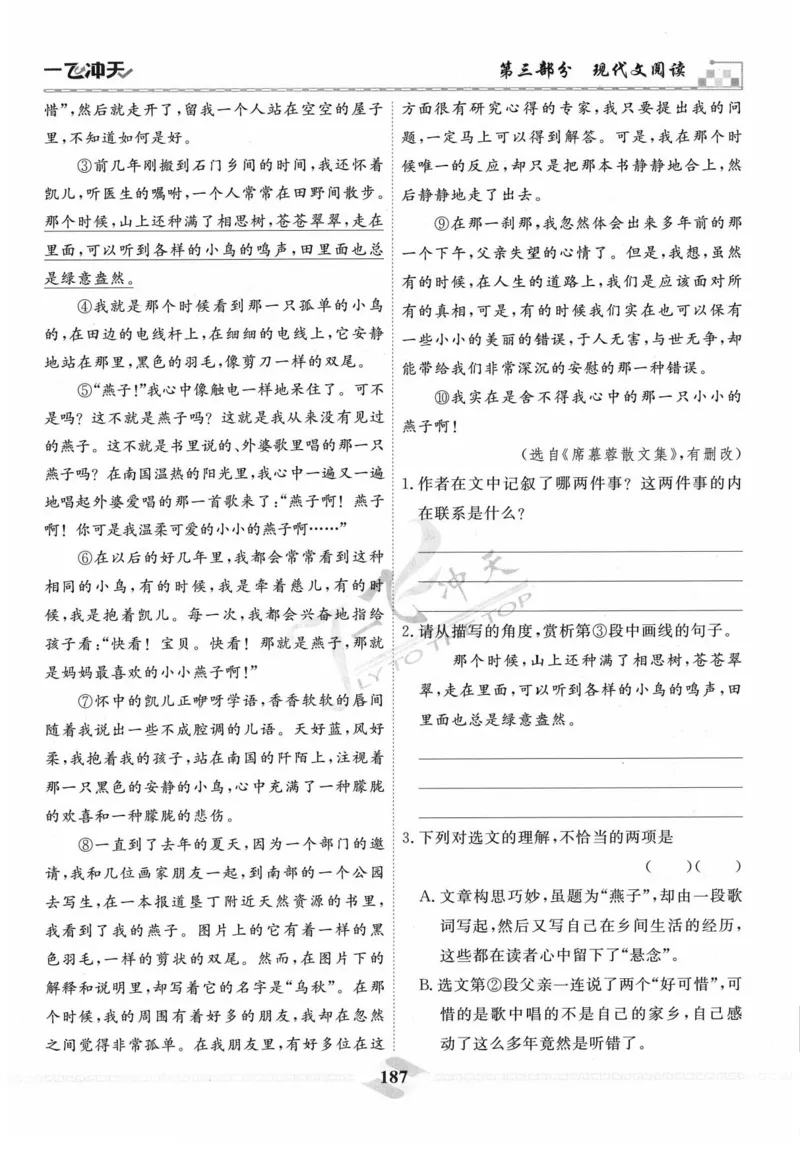 一飞冲天
第三部分 现代文阅读
惜”，然后就走开了，留我一个人站在空空的屋子
里，不知道如何是好。
③前几年刚搬到石门乡间的时间，我还怀着
凯儿，听医生的嘱咐，一个人常常在田野间散步。
那个时候，山上还种满了相思树，苍苍翠翠，走在
里面，可以听到各样的小鸟的鸣声，田里面也总
是绿意盎然。
④我就是那个时候看到那一只孤单的小鸟
的，在田边的电线杆上，在细细的电线上，它安静
地站在那里，黑色的羽毛，像剪刀一样的双尾。
⑤“燕子！”我心中像触电一样地呆住了。可不
是吗？这不就是燕子吗？这就是我从来没有见过
的燕子。这不就是书里说的、外婆歌里唱的那一只
燕子吗？在南国温热的阳光里，我心中一遍又一遍
地唱起外婆爱唱的那一首歌来了：“燕子啊！燕子
啊！你可是我温柔可爱的小小的燕子啊……”
⑥在以后的好几年里，我都会常常看到这种
相同的小鸟，有的时候，我是牵着慈儿，有的时
候，我是抱着凯儿。每一次，我都会兴奋地指给
孩子看：“快看！宝贝。快看！那就是燕子，那就
是妈妈最喜欢的小小燕子啊！”
⑦怀中的凯儿正咿呀学语，香香软软的唇间
随着我说出一些不成腔调的儿语。天好蓝，风好
柔，我抱着我的孩子，站在南国的阡陌上，注视着
那一只黑色的安静的小鸟，心中充满了一种朦胧
的欢喜和一种朦胧的悲伤。
⑧一直到了去年的夏天，因为一个部门的邀
请，我和几位画家朋友一起，到南部的一个公园
去写生，在一本报道垦丁附近天然资源的书里，
我看到了我的燕子。图片上的它有着一样的黑
色羽毛，一样的剪状的双尾。然而，在图片下的
解释和说明里，却写着它的名字是“乌秋”。在那
个时候，我的周围有着好多的朋友，我却在忽然
之间觉得非常孤单。在我朋友里，有好多位在这
方面很有研究心得的专家，我只要提出我的问
题，一定马上可以得到解答。可是，我在那个时
候唯一的反应，却只是把那本书静静地合上，然
后静静地走了出去。
⑨在那一刹那，我忽然体会出来多年前的那
一个下午，父亲失望的心情了。但是，我想，虽然
有的时候，在人生的道路上，我们是应该面对所
有的真相，可是，有的时候我们实在也可以保有
一些小小的美丽的错误，于人无害，与世无争，却
能带给我们非常深沉的安慰的那一种错误。
⑩我实在是舍不得我心中的那一只小小的
燕子啊！
（选自《席慕蓉散文集》，有删改）
1.作者在文中记叙了哪两件事？这两件事的内
在联系是什么？
2.请从描写的角度，赏析第③段中画线的句子。
那个时候，山上还种满了相思树，苍苍翠
翠，走在里面，可以听到各样的小鸟的鸣声，田
里面也总是绿意盎然。
3.下列对选文的理解，不恰当的两项是
（ ）（ ）
A.文章构思巧妙，虽题为“燕子”，却由一段歌
词写起，然后又写自己在乡间生活的经历，
这些都在读者心中留下了“悬念”。
B.选文第②段父亲一连说了两个“好可惜”，可
惜的是歌中唱的不是自己的家乡，自己感
动了这么多年竟然是听错了。
187
一飞冲天
FLY TO THE TOP